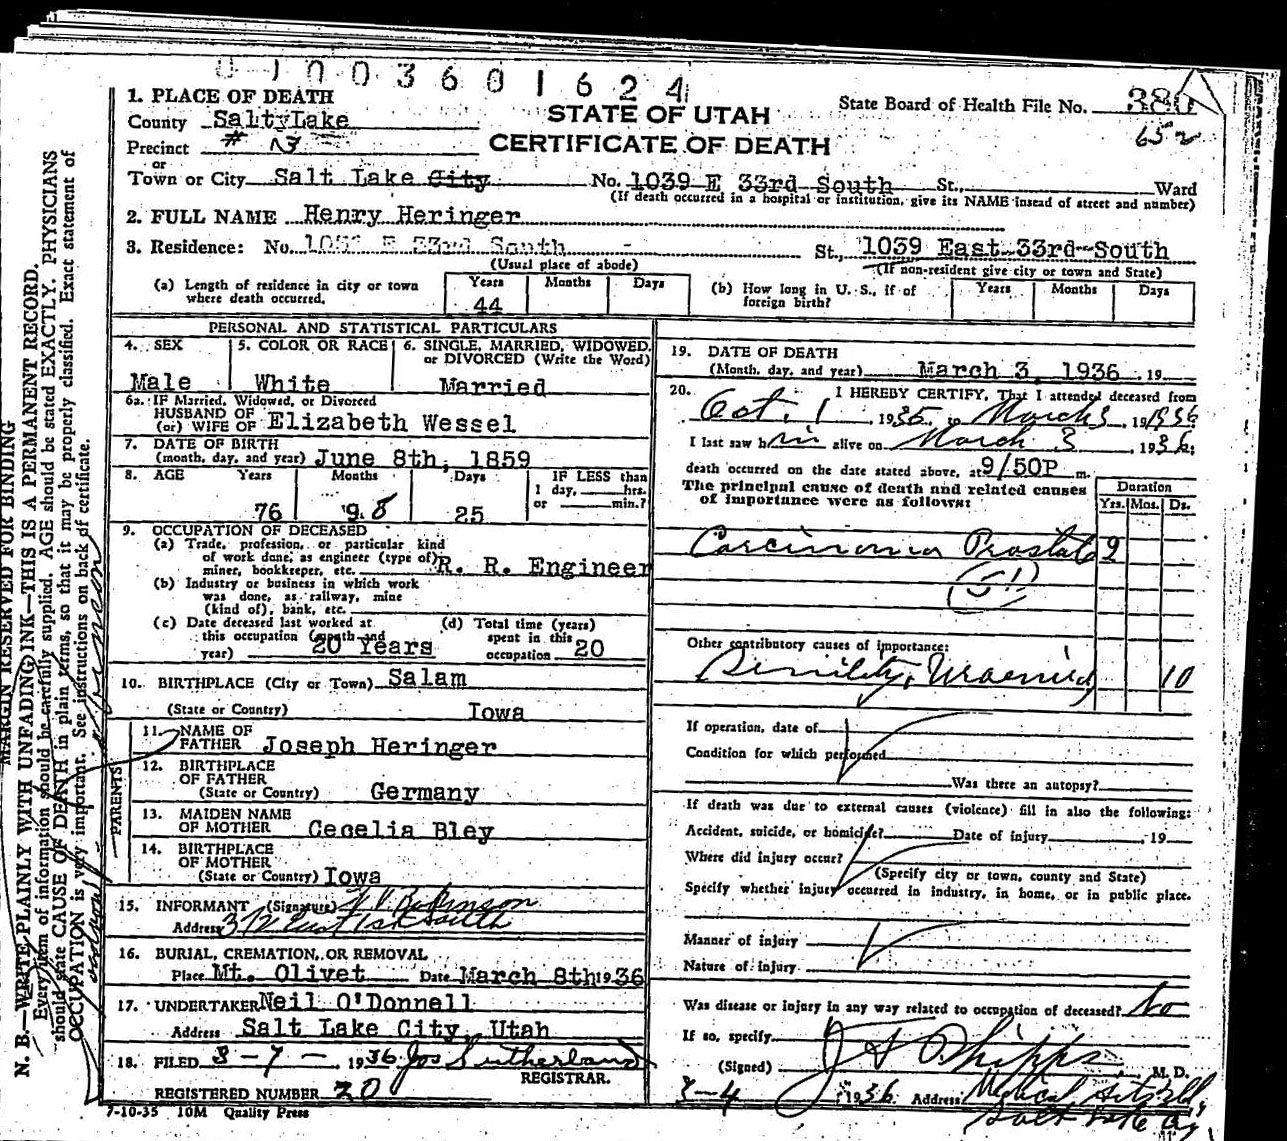 0 1 0 0 3 6 0 1 6 2 4
1. PLACE OF DEATH
County Salt Lake
STATE OF UTAH
CERTIFICATE OF DEATH
State Board of Health File No. 380
652
Precinct # 
or
Town or City Salt Lake City No. 1039 E 33rd South St., Ward
(If death occurred in a hospital or institution, give its NAME insead of street and number)
2. FULL NAME Henry Heringer
3. Residence: No. 33rd South St., 1039 East 33rd South
(Usual place of abode) (If non-resident give city or town and State)
(a) Length of residence in city or town where death occurred. Years 44 Months Days
(b) How long in U. S., if of foreign birth? Years Months Days
PERSONAL AND STATISTICAL PARTICULARS
4. SEX Male
5. COLOR OR RACE White
6. SINGLE, MARRIED, WIDOWED, or DIVORCED (Write the Word) Married
6a. IF Married, Widowed, or Divorced
HUSBAND OF
(or) WIFE OF Elizabeth Wessel
7. DATE OF BIRTH
(month, day, and year) June 8th, 1859
8. AGE Years 76 Months 9 8 Days 25
IF LESS than
1 day, hrs.
or min.?
9. OCCUPATION OF DECEASED
(a) Trade, profession, or particular kind
of work done, as engineer (type of)
miner, bookkeeper, etc. R. R. Engineer
(b) Industry or business in which work
was done, as railway, mine
(kind of), bank, etc.
(c) Date deceased last worked at
this occupation (month and
year) 20 Years
(d) Total time (years)
spent in this
occupation 20
10. BIRTHPLACE (City or Town) Salam
(State or Country) Iowa
PARENTS
11. NAME OF
FATHER Joseph Heringer
12. BIRTHPLACE
OF FATHER
(State or Country) Germany
13. MAIDEN NAME
OF MOTHER Cecelia Bley
14. BIRTHPLACE
OF MOTHER
(State or Country) Iowa
15. INFORMANT (Signature)
Address East 1st South
16. BURIAL, CREMATION, OR REMOVAL
Place Mt. Olivet Date March 8th 1936
17. UNDERTAKER Neil O'Donnell
Address Salt Lake City, Utah
18. FILED 3-7- 1936 Jos Sutherland
REGISTRAR.
REGISTERED NUMBER 20
7-10-35 10M Quality Press
19. DATE OF DEATH
(Month, day, and year) March 3, 1936 , 19
20. I HEREBY CERTIFY, That I attended deceased from
Oct. 1 1935 to March 3 , 19 1936
I last saw him alive on March 3 , 1936;
death occurred on the date stated above, at 9/50P m.
The principal cause of death and related causes
of importance were as follows:
Duration
Yrs. Mos. Ds.
Carcinoma Prostate 2
51
Other contributory causes of importance:
Senility, Uraemia, 10
If operation, date of
Condition for which performed
Was there an autopsy?
If death was due to external causes (violence) fill in also the following:
Accident, suicide, or homicide? Date of injury , 19
Where did injury occur?
(Specify city or town, county and State)
Specify whether injury occurred in industry, in home, or in public place.
Manner of injury
Nature of injury
Was disease or injury in any way related to occupation of deceased? No
If so, specify
(Signed) Phipps M. D.
3-4 1936 Address Medical
Salt Lake
MARGIN RESERVED FOR BINDING
N. B.—WRITE PLAINLY WITH UNFADING INK—THIS IS A PERMANENT RECORD.
Every item of information should be carefully supplied. AGE should be stated EXACTLY. PHYSICIANS
should state CAUSE OF DEATH in plain terms, so that it may be properly classified. Exact statement of
OCCUPATION is very important. See instructions on back of certificate.